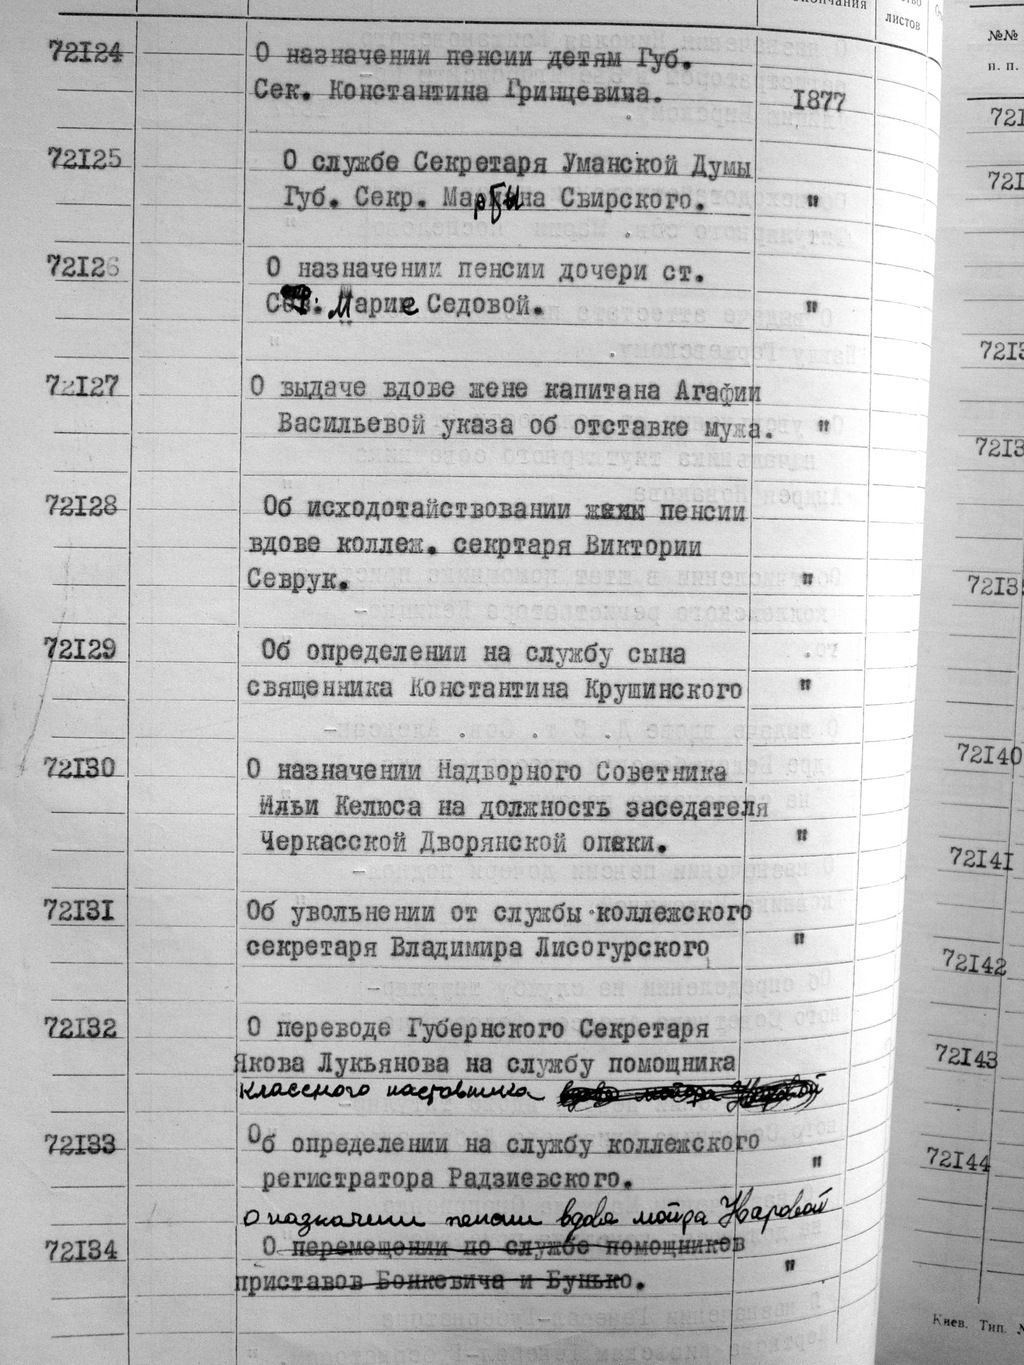 окончания
листов
№№
п. п.
72124 О назначении пенсии детям Губ.
Сек. Константина Гринцевича. 1877
72125 О службе Секретаря Уманской Думы
Губ. Секр. Свирского. "
72126 О назначении пенсии дочери ст.
Марие Седовой. "
72127 О выдаче вдове жене капитана Агафии
Васильевой указа об отставке мужа. "
72128 Об исходотайствовании пенсии
вдове коллеж. секртаря Виктории
Севрук. "
72129 Об определении на службу сына
священника Константина Крушинского "
72130 О назначении Надворного Советника
Ильи Келюса на должность заседателя
Черкасской Дворянской опеки. "
72131 Об увольнении от службы коллежского
секретаря Владимира Лисогурского "
72132 О переводе Губернского Секретаря
Якова Лукьянова на службу помощника
классного наставника
72133 Об определении на службу коллежского
регистратора Радзиевского. "
о назначении пенсии вдове майора Наровой
72134 О перемещении по службе помощников
приставов Бонкевича и Бунько. "
72140
72141
72142
72143
72144
Киев. Тип.